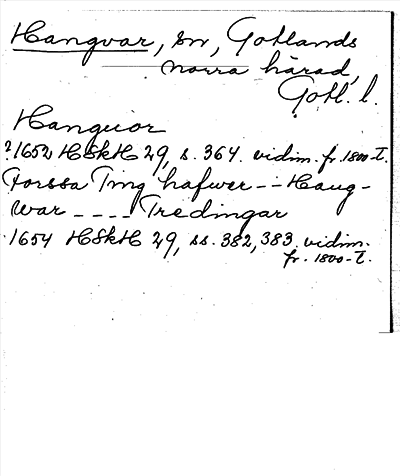 Hangvar, sn, Gotlands
norra härad,
Gotl. l.
Hanguor
?1652 HSkH 29, s. 364. vidim. fr. 1800-t.
Forssa Ting hafwer -- Hang-
war ---- Tredingar
1654 HSkH 29, ss. 382, 383. vidim.
fr. 1800-t.